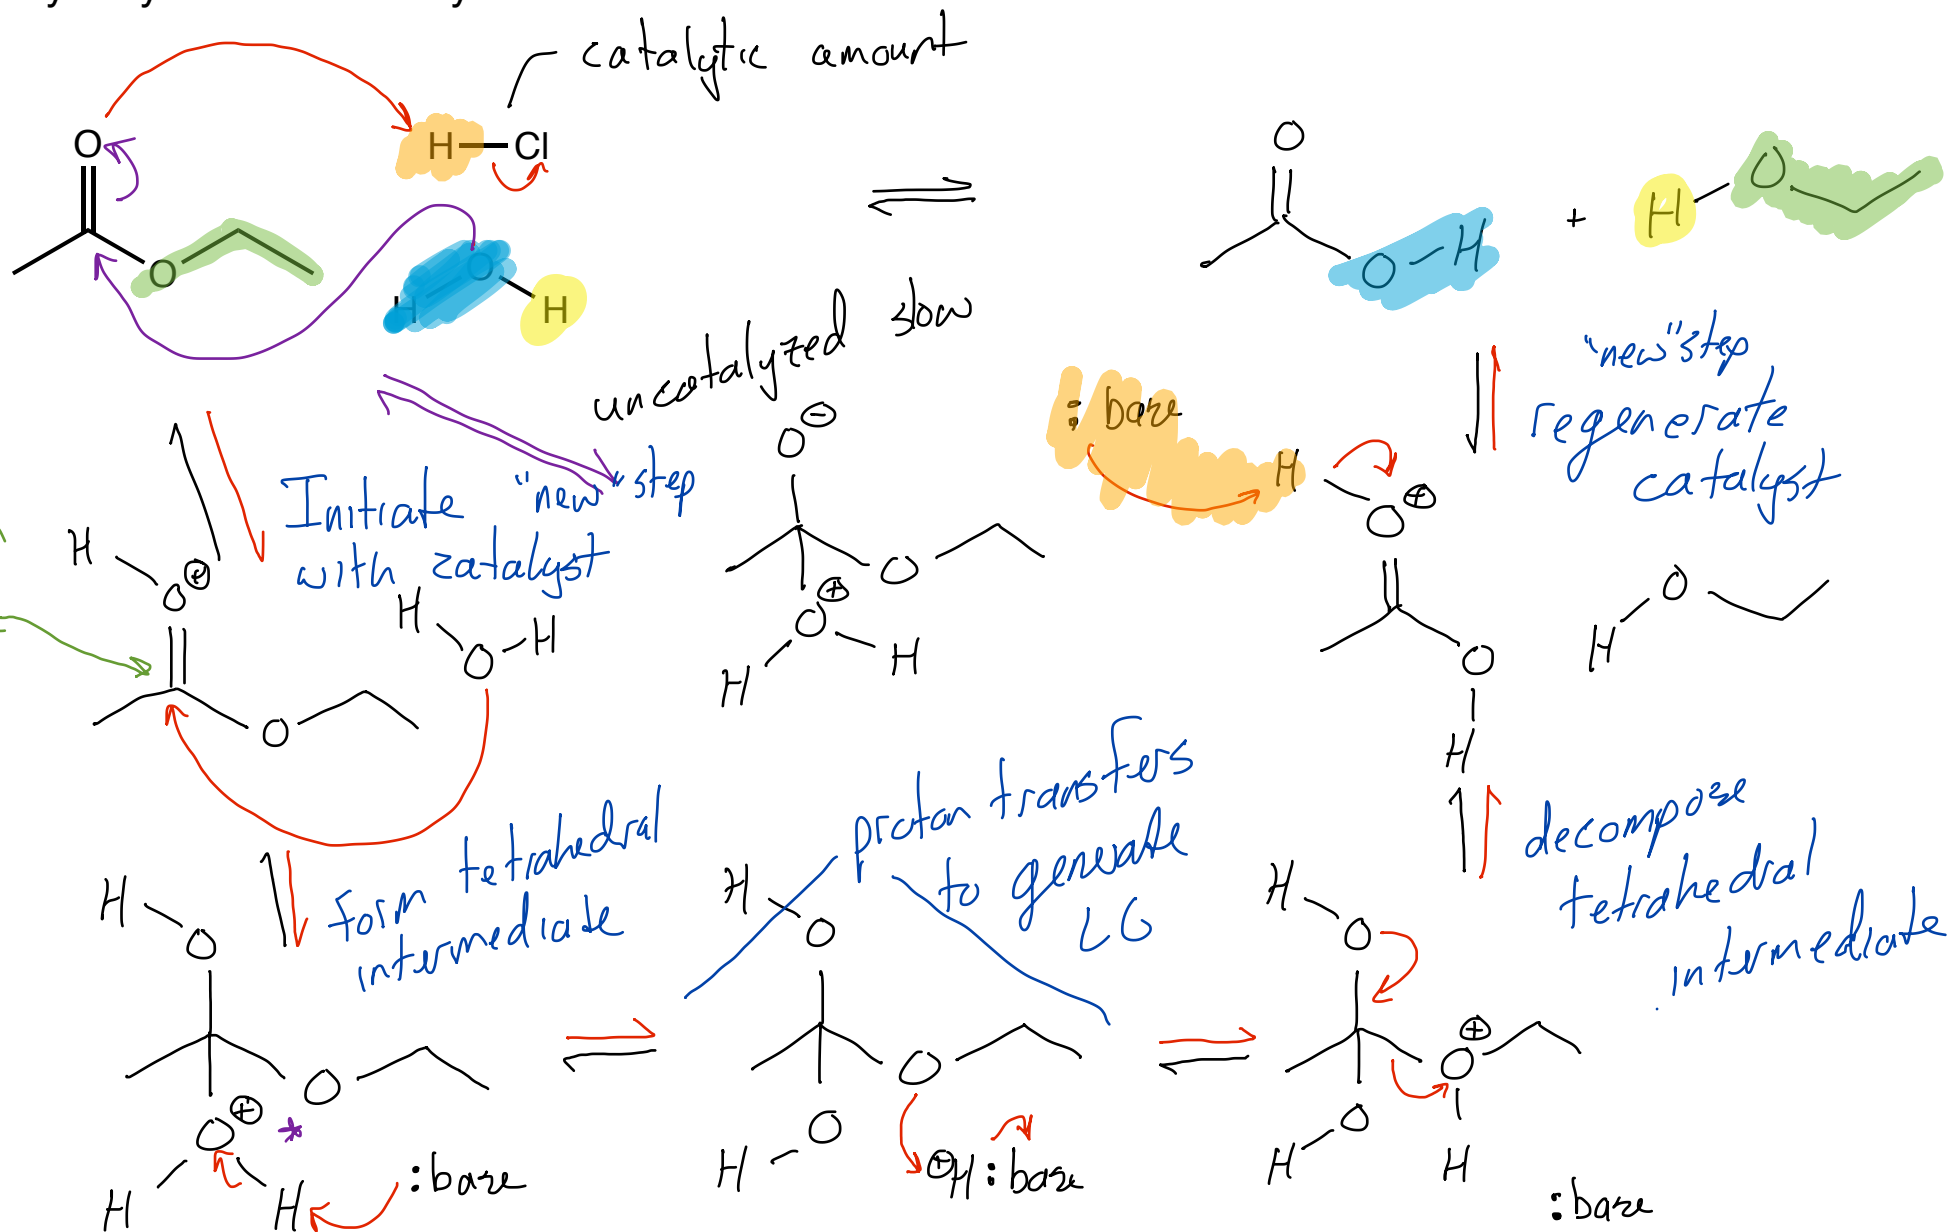 catalytic amount
O
H—Cl
O
H O H
O
O
O—H
+
H O
uncatalyzed slow
"new" step
regenerate
catalyst
: base
H
O ⊕
O
H
H O
Initiate "new" step
with catalyst
H
O ⊕
O
H O H
O ⊖
O
O ⊕
H H
Form tetrahedral
intermediate
proton transfers
to generate
LG
decompose
tetrahedral
intermediate
H
O
O
O ⊕ *
H H
:base
H
O
O
O
H
⊕H:base
H
O
O ⊕
O
H H
:base